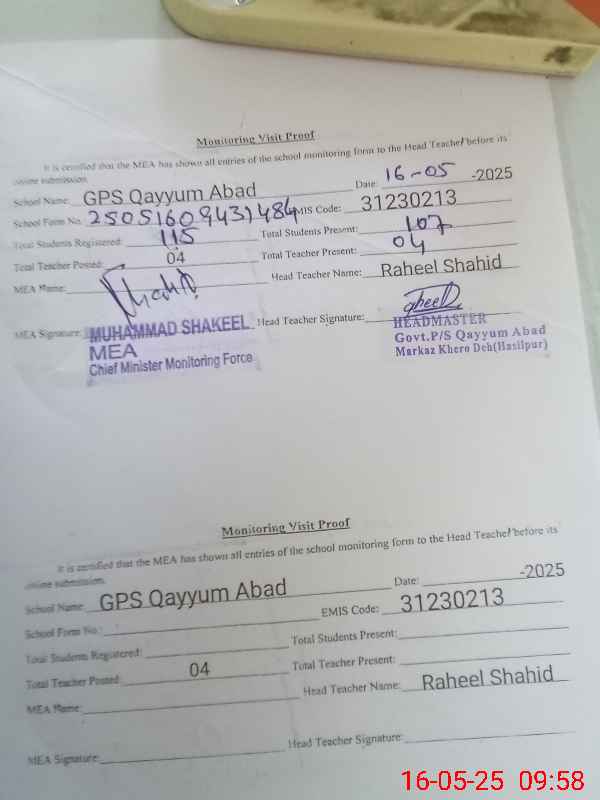 Monitoring Visit Proof
It is certified that the MEA has shown all entries of the school monitoring form to the Head Teacher before its
online submission.
School Name: GPS Qayyum Abad Date: 16-05 -2025
School Form No. 25051609431484 EMIS Code: 31230213
Total Students Registered: 115 Total Students Present: 107
Total Teacher Posted: 04 Total Teacher Present: 04
MEA Name: Head Teacher Name: Raheel Shahid
MEA Signature: Head Teacher Signature:
MUHAMMAD SHAKEEL
MEA
Chief Minister Monitoring Force
HEADMASTER
Govt.P/S Qayyum Abad
Markaz Khero Deh(Hasilpur)
Monitoring Visit Proof
It is certified that the MEA has shown all entries of the school monitoring form to the Head Teacher before its
online submission.
School Name: GPS Qayyum Abad Date: -2025
School Form No.: EMIS Code: 31230213
Total Students Registered: Total Students Present:
Total Teacher Posted: 04 Total Teacher Present:
MEA Name: Head Teacher Name: Raheel Shahid
MEA Signature: Head Teacher Signature:
16-05-25 09:58